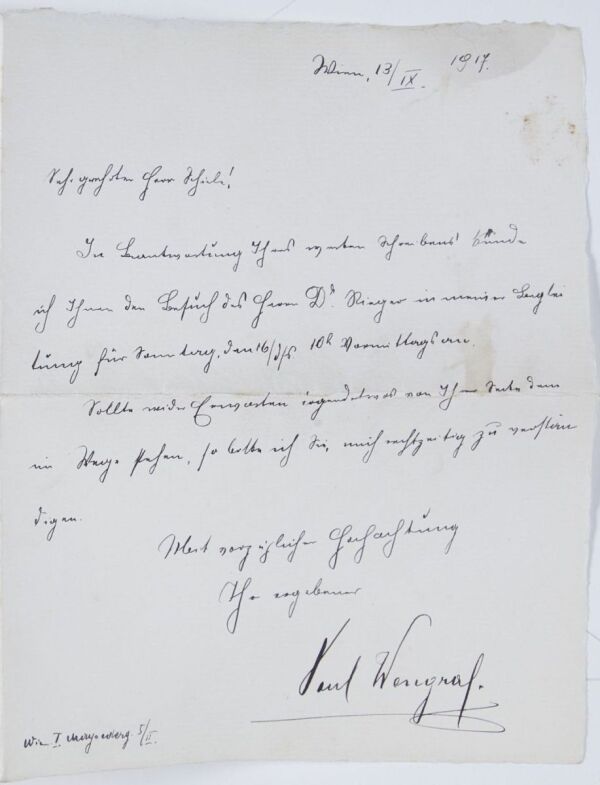 Wien, 13/IX. 1917.
Sehr geehrter Herr Schiele!
In Beantwortung Ihres werten Schreibens künde
ich Ihnen den Besuch des Herrn Dr. Rieger in meiner Beglei
tung für Sonntag, den 16/d/s 10h Vormittags an.
Sollte wider Erwarten irgendetwas von Ihrer Seite dem
im Wege stehen, so bitte ich Sie, mich rechtzeitig zu verstän
digen.
Mit vorzüglicher Hochachtung
Ihr ergebener
Paul Wengraf.
Wien I. I/II.